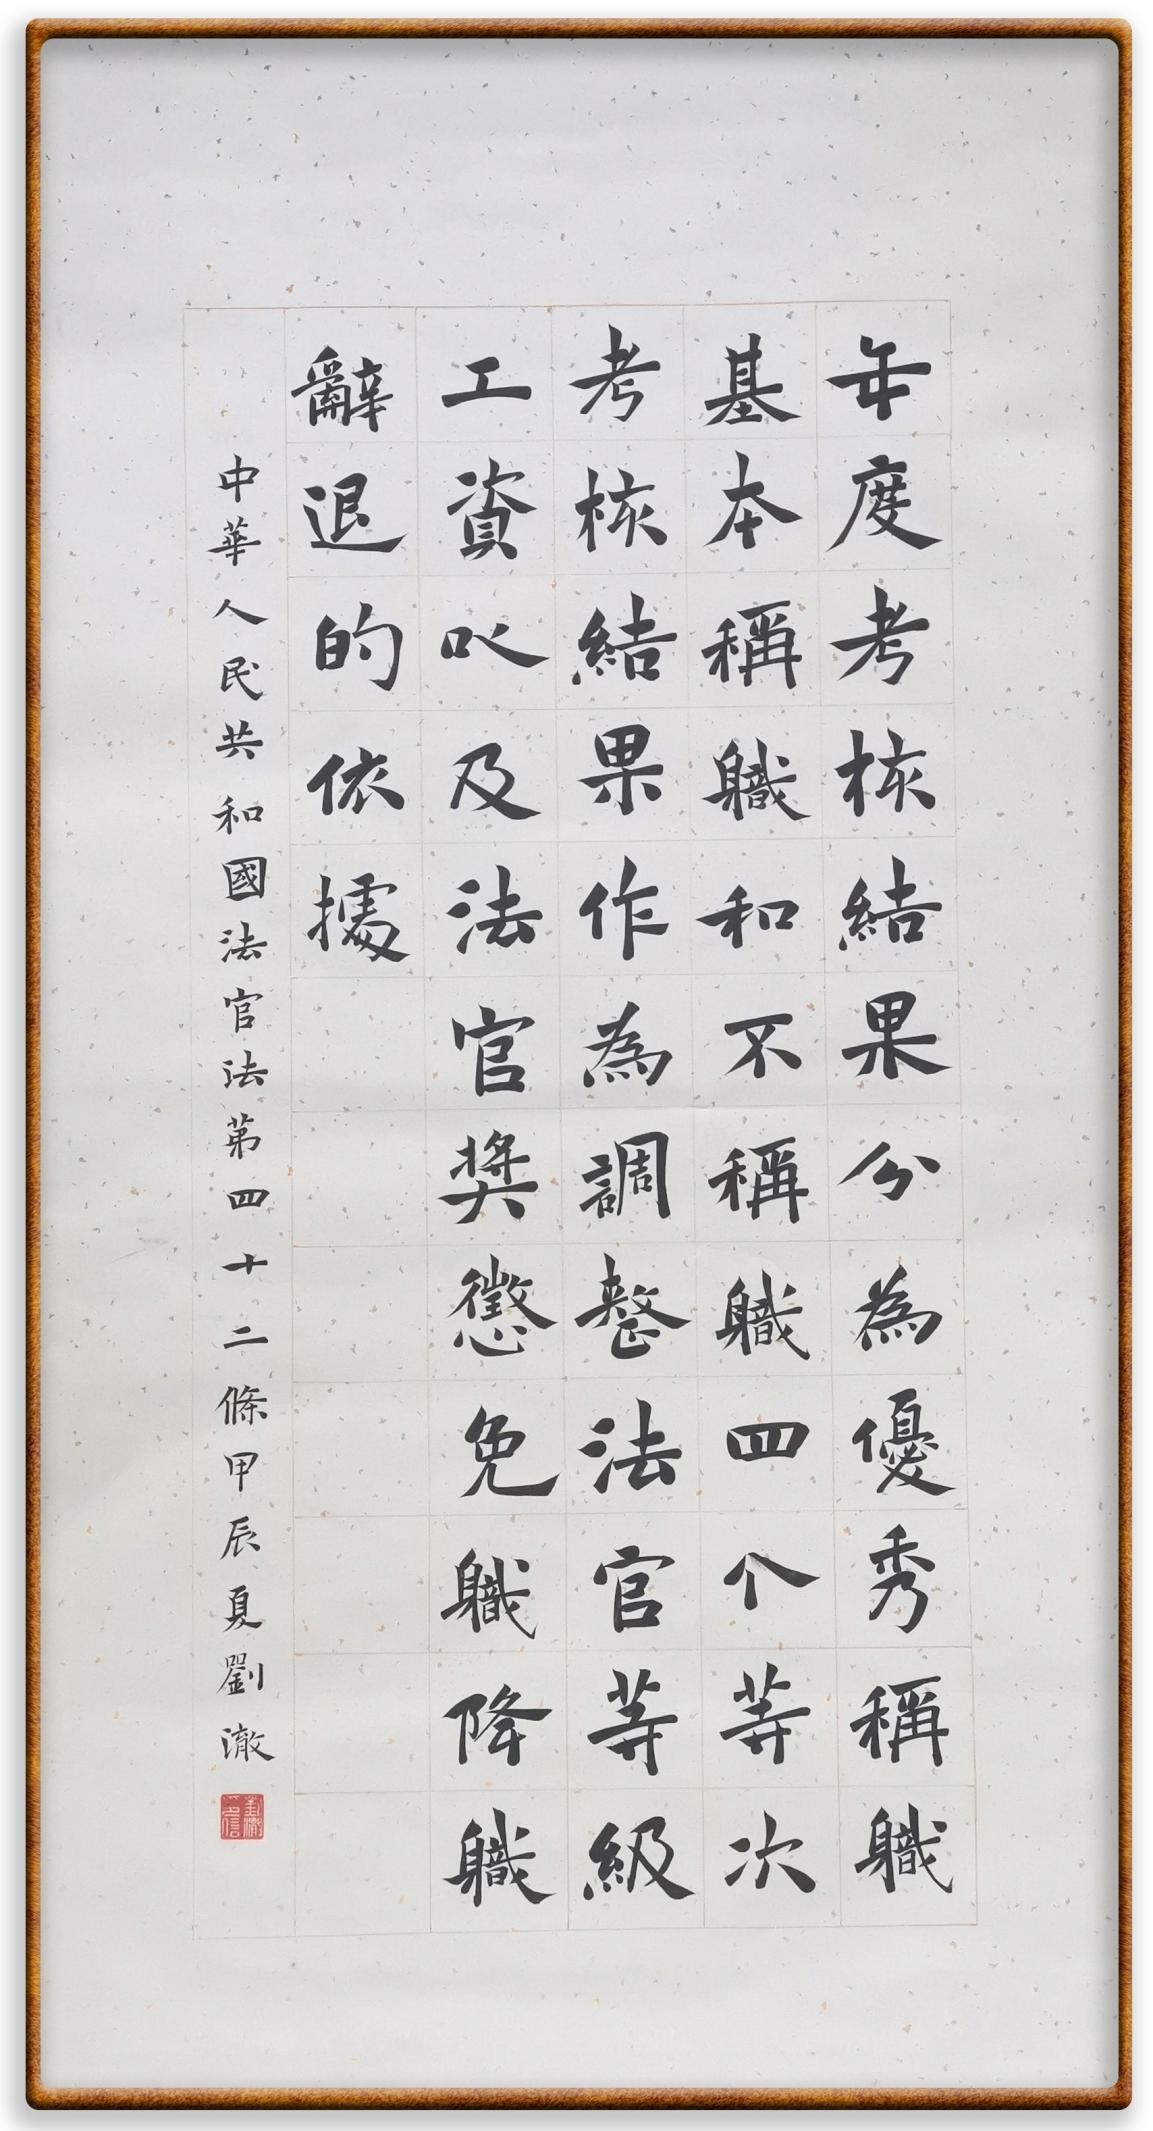 年度考核結果分為優秀稱職
基本稱職和不稱職四个等次
考核結果作為調整法官等級
工資以及法官奬懲免職降職
辭退的依據
中華人民共和國法官法第四十二條甲辰夏劉澈